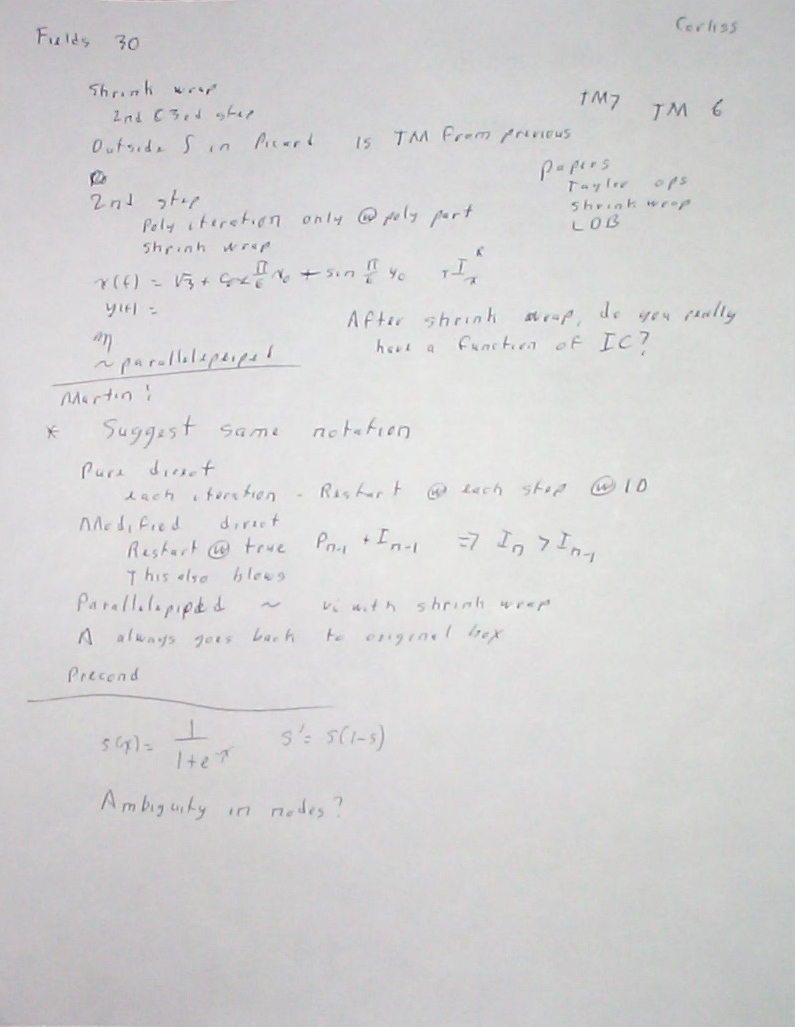 Fields 30
Corliss
Shrink wrap
2nd & 3rd step
TM7 TM 6
Outside ∫ in Picard is TM from previous
Papers
Taylor ops
Shrink wrap
LOB
2nd step
Poly iteration only @ poly part
Shrink wrap
x(t) = √3 + cos π/6 x₀ + sin π/6 y₀ + I_x^R
y(t) =
After shrink wrap, do you really
have a function of IC?
~ parallelepiped
Martin:
* Suggest same notation
Pure direct
each iteration - Restart @ each step @ 10
Modified direct
Restart @ true P_{n-1} + I_{n-1} => I_n > I_{n-1}
This also blows
Parallelepiped ~ vs with shrink wrap
A always goes back to original box
Precond
s(x) = 1/(1+e^{-x}) s' = s(1-s)
Ambiguity in nodes?